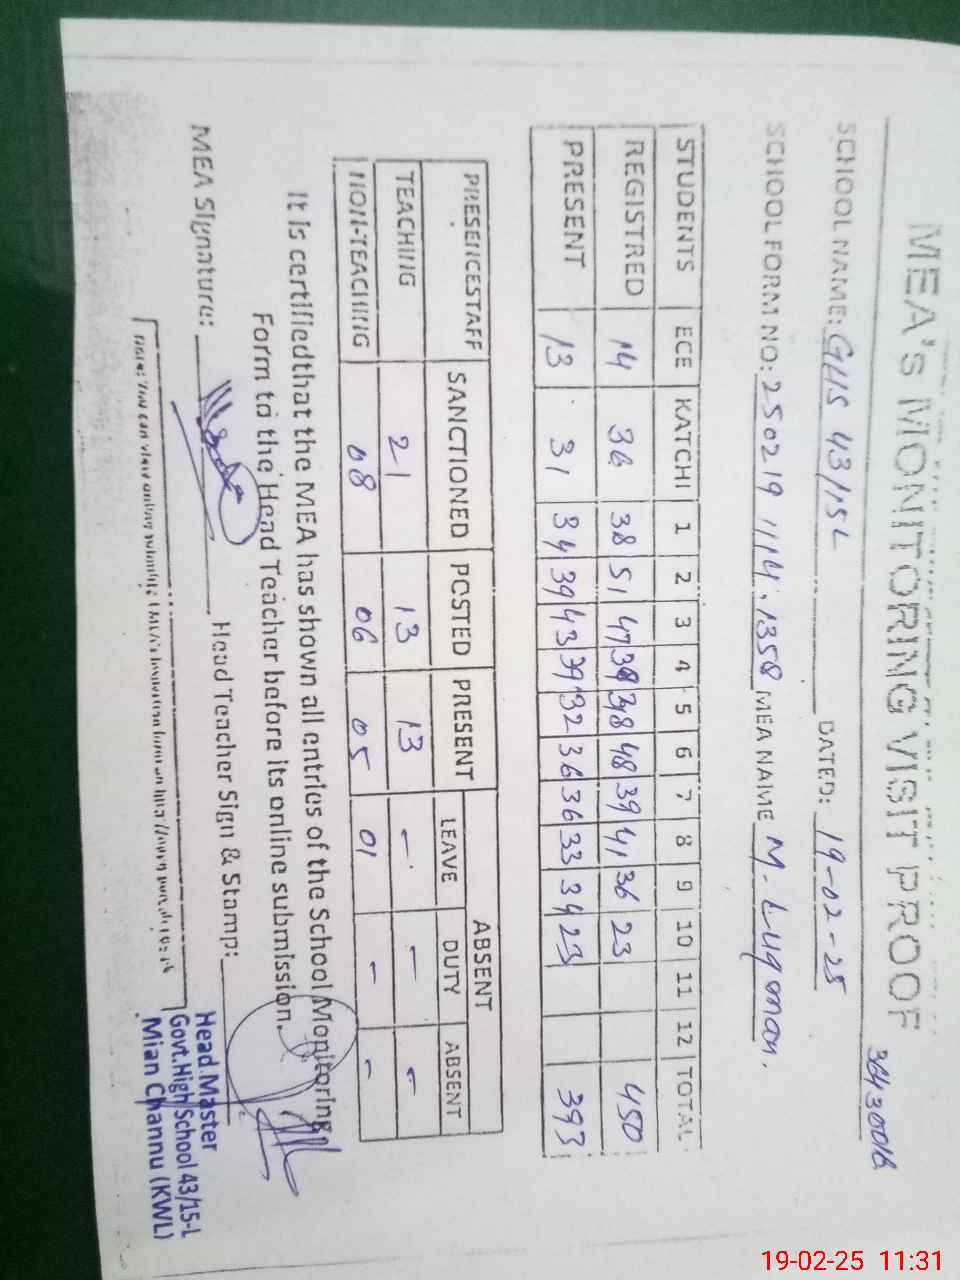 MEA's MONITORING VISIT PROOF
36430016
SCHOOL NAME: GHS 43/15L DATED: 19-02-25
SCHOOL FORM NO: 250219 1114.1358 MEA NAME M. Luqman.
STUDENTS ECE KATCHI 1 2 3 4 5 6 7 8 9 10 11 12 TOTAL
REGISTRED 14 36 38 51 47 38 48 39 41 36 23 450
PRESENT 13 31 34 39 43 39 32 36 36 33 34 23 393
PRESENCESTAFF SANCTIONED POSTED PRESENT ABSENT
LEAVE DUTY ABSENT
TEACHING 21 13 13 - - -
NON-TEACHING 08 06 05 01 - -
It is certifiedthat the MEA has shown all entries of the School Monitoring
Form to the Head Teacher before its online submission.
MEA Signature: Head Teacher Sign & Stamp:
Head Master
Govt.High School 43/15-L
Mian Channu (KWL)
Note: You can view online
19-02-25 11:31